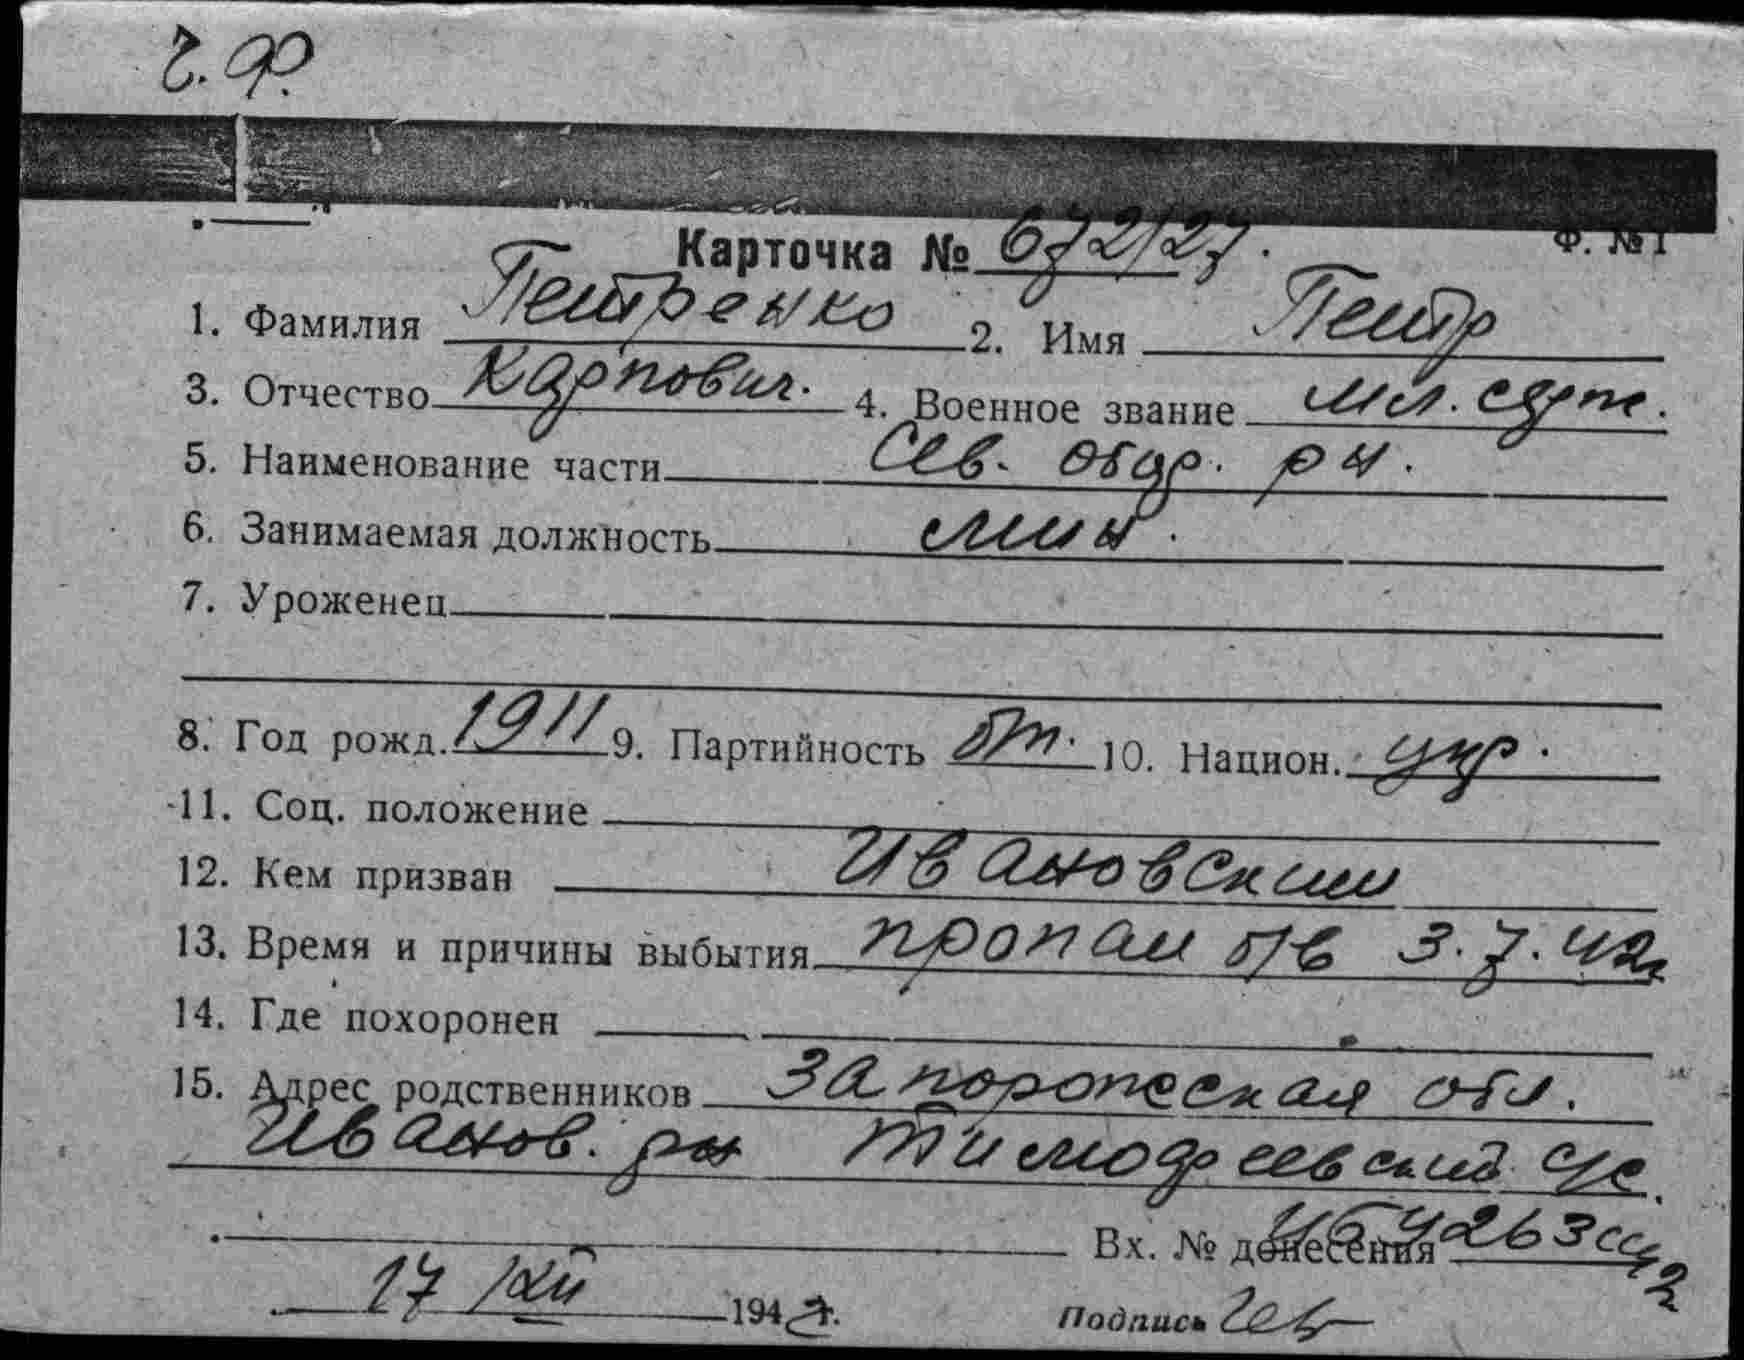 Ч.Ф.
Карточка № 672/27.
Ф. № 1
1. Фамилия Петренко 2. Имя Петр
3. Отчество Карпович. 4. Военное звание мл. серж.
5. Наименование части Сев. обор. рн.
6. Занимаемая должность мин.
7. Уроженец
8. Год рожд. 1911 9. Партийность б/п. 10. Национ. укр.
11. Соц. положение
12. Кем призван Ивановским
13. Время и причины выбытия пропал б/в 3.7.42г
14. Где похоронен
15. Адрес родственников Запорожская обл.
Иванов. рн Тимофеевский с/с.
Вх. № донесения
17 /XII 194 г.
Подпись